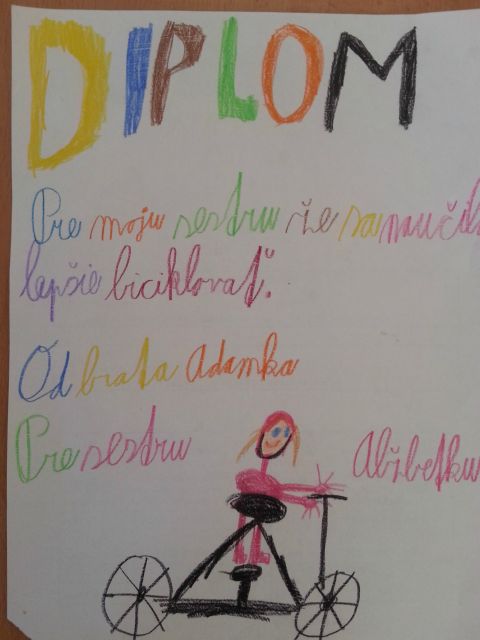 DIPLOM
Pre moju sestru že sa naučila
lepšie biciklovať.
Od brata Adamka
Pre sestru Alžbetku